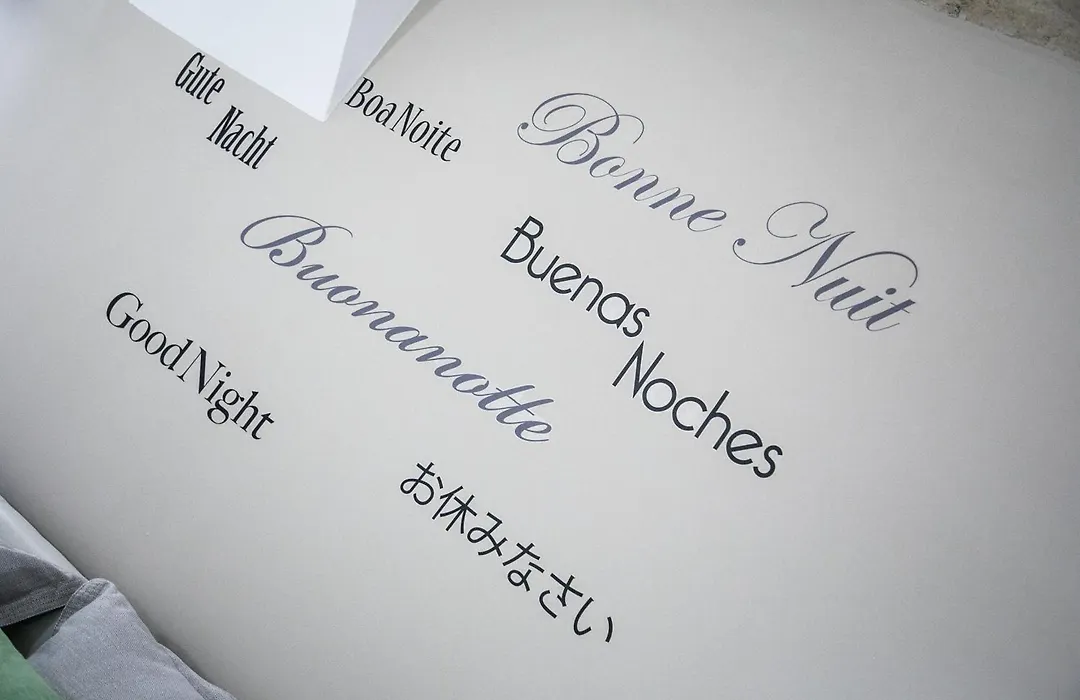 Gute
Nacht
Boa Noite
Bonne Nuit
Buonanotte
Buenas
Noches
Good Night
お休みなさい